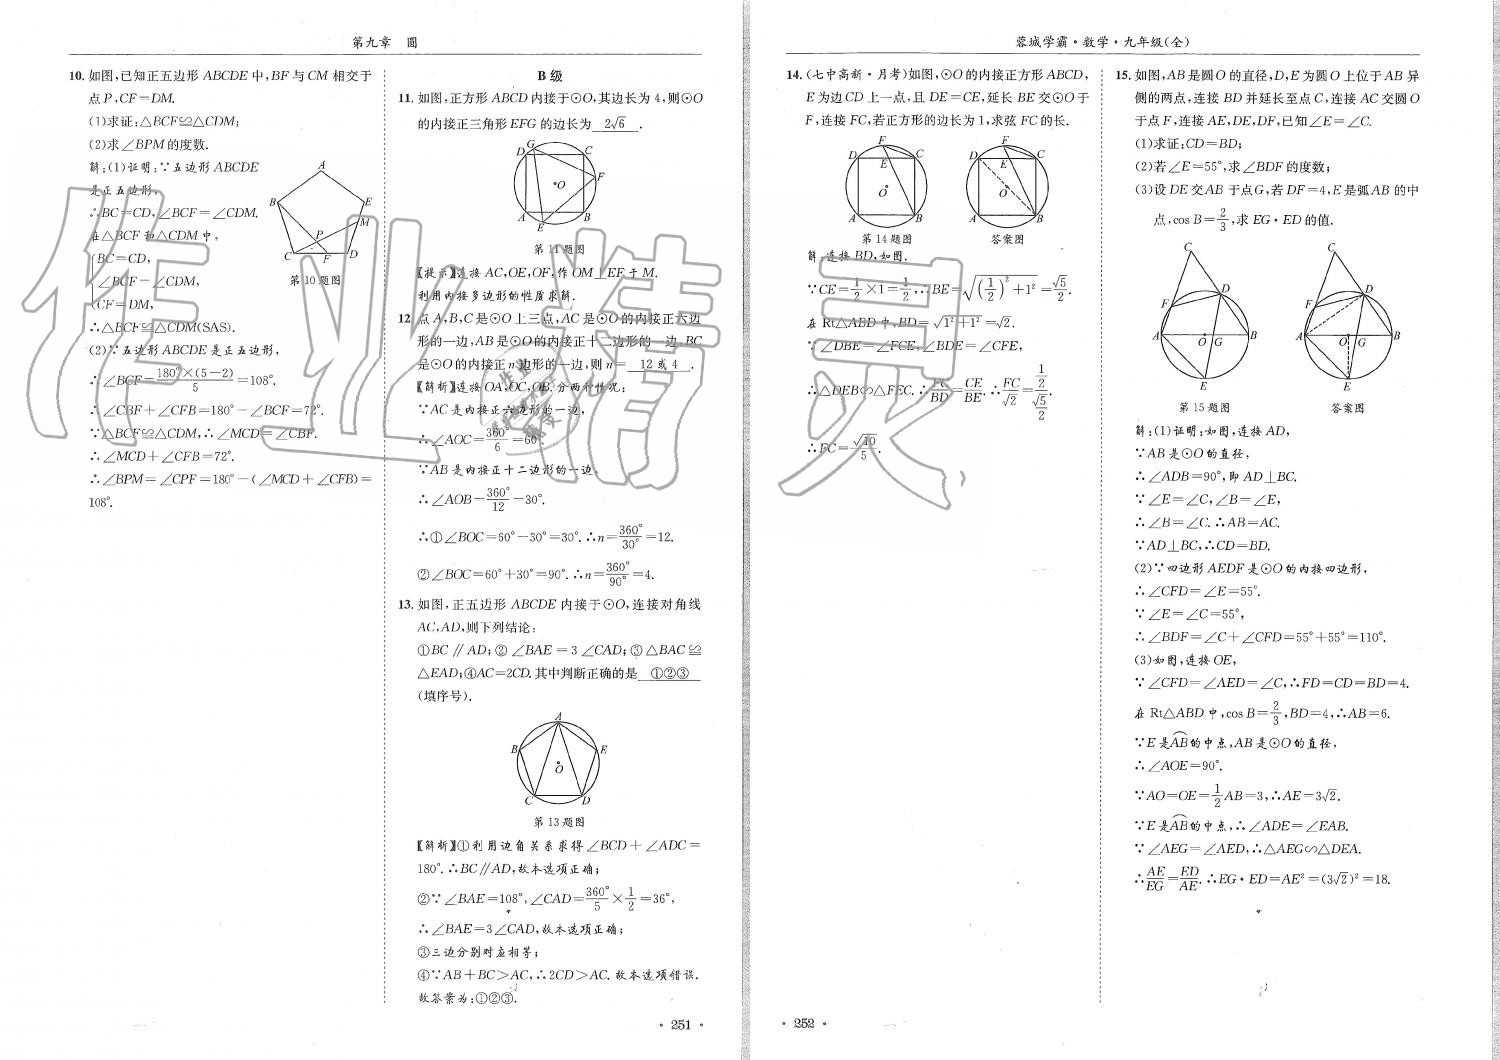 第九章　圆
10. 如图,已知正五边形 ABCDE 中,BF 与 CM 相交于
点 P,CF=DM.
(1)求证:△BCF≌△CDM;
(2)求∠BPM 的度数.
解:(1)证明:∵五边形 ABCDE
是正五边形,
∴BC=CD,∠BCF=∠CDM.
在△BCF 和△CDM 中,
{BC=CD,
∠BCF=∠CDM,
CF=DM,
∴△BCF≌△CDM(SAS).
A
B
E
M
P
C
F
D
第10题图
(2)∵五边形 ABCDE 是正五边形,
∴∠BCF=180°×(5-2)/5=108°.
∴∠CBF+∠CFB=180°-∠BCF=72°.
∵△BCF≌△CDM,∴∠MCD=∠CBF.
∴∠MCD+∠CFB=72°.
∴∠BPM=∠CPF=180°-(∠MCD+∠CFB)=
108°.
B 级
11. 如图,正方形 ABCD 内接于⊙O,其边长为 4,则⊙O
的内接正三角形 EFG 的边长为 2√6 .
D G C
F
O
A E B
第11题图
【提示】连接 AC,OE,OF,作 OM⊥EF 于 M.
利用内接多边形的性质求解.
12. 点 A,B,C 是⊙O 上三点,AC 是⊙O 的内接正六边
形的一边,AB 是⊙O 的内接正十二边形的一边,BC
是⊙O 的内接正 n 边形的一边,则 n= 12 或 4 .
【解析】连接 OA,OC,OB.分两种情况:
∵AC 是内接正六边形的一边,
∴∠AOC=360°/6=60°.
∵AB 是内接正十二边形的一边,
∴∠AOB=360°/12=30°.
∴①∠BOC=60°-30°=30°.∴n=360°/30°=12.
②∠BOC=60°+30°=90°.∴n=360°/90°=4.
13. 如图,正五边形 ABCDE 内接于⊙O,连接对角线
AC,AD,则下列结论:
①BC∥AD;②∠BAE=3∠CAD;③△BAC≌
△EAD;④AC=2CD.其中判断正确的是 ①②③
(填序号).
A
B
E
O
C
D
第13题图
【解析】①利用边角关系求得∠BCD+∠ADC=
180°.∴BC∥AD,故本选项正确;
②∵∠BAE=108°,∠CAD=360°/5×1/2=36°,
∴∠BAE=3∠CAD,故本选项正确;
③三边分别对应相等;
④∵AB+BC>AC,∴2CD>AC.故本选项错误.
故答案为:①②③.
· 251 ·
蓉城学霸·数学·九年级(全)
14. (七中高新·月考)如图,⊙O 的内接正方形 ABCD,
E 为边 CD 上一点,且 DE=CE,延长 BE 交⊙O 于
F,连接 FC,若正方形的边长为 1,求弦 FC 的长.
F
D E C
O
A B
第14题图
F
D E C
O
A B
答案图
解:连接 BD,如图.
∵CE=1/2×1=1/2,∴BE=√((1/2)²+1²)=√5/2.
在 Rt△ABD 中,BD=√(1²+1²)=√2.
∵∠DBE=∠FCE,∠BDE=∠CFE,
∴△DEB∽△FEC.∴FC/BD=CE/BE.∴FC/√2=(1/2)/(√5/2).
∴FC=√10/5.
15. 如图,AB 是圆 O 的直径,D,E 为圆 O 上位于 AB 异
侧的两点,连接 BD 并延长至点 C,连接 AC 交圆 O
于点 F,连接 AE,DE,DF,已知∠E=∠C.
(1)求证:CD=BD;
(2)若∠E=55°,求∠BDF 的度数;
(3)设 DE 交 AB 于点 G,若 DF=4,E 是弧 AB 的中
点,cos B=2/3,求 EG·ED 的值.
C
F
D
A
O G
B
E
第15题图
C
F
D
A
O G
B
E
答案图
解:(1)证明:如图,连接 AD,
∵AB 是⊙O 的直径,
∴∠ADB=90°,即 AD⊥BC.
∵∠E=∠C,∠B=∠E,
∴∠B=∠C.∴AB=AC.
∵AD⊥BC,∴CD=BD.
(2)∵四边形 AEDF 是⊙O 的内接四边形,
∴∠CFD=∠E=55°.
∵∠E=∠C=55°,
∴∠BDF=∠C+∠CFD=55°+55°=110°.
(3)如图,连接 OE,
∵∠CFD=∠AED=∠C,∴FD=CD=BD=4.
在 Rt△ABD 中,cos B=2/3,BD=4,∴AB=6.
∵E 是A͡B的中点,AB 是⊙O 的直径,
∴∠AOE=90°.
∵AO=OE=1/2AB=3,∴AE=3√2.
∵E 是A͡B的中点,∴∠ADE=∠EAB.
∵∠AEG=∠AED,∴△AEG∽△DEA.
∴AE/EG=ED/AE.∴EG·ED=AE²=(3√2)²=18.
· 252 ·
作业精灵